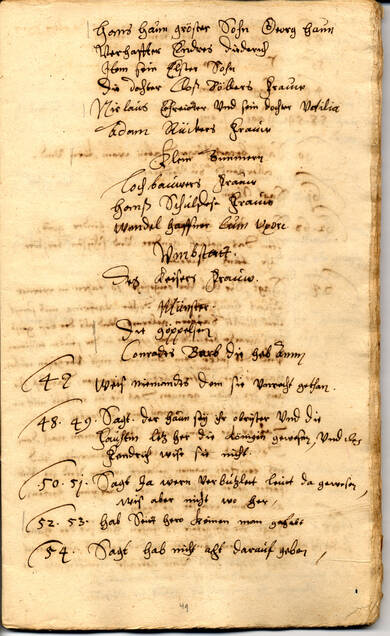 Hans Haun gröster Sohn Georg Haun
Verhaffter Endres Diederich
Item sein Elster Sohn
Die dochter Cloß Frauw
Niclaus Schreider Und sein dochter
Adam Rückers Frauw
Klein Zimmern
Lochbauwers Frauw
Hanß Schultes Frauw
Wendel Haffner cum Uxore
Umbstatt.
Des Keisers Frauw.
Münster.
Die Göppelsen
Conrades Barb die hab
47 Weis niemandes dem sie Unrecht gethan.
48. 49. Sagt der Haun sey Ihr obrister Und die
her die Königin gewesen, Und
wise sie nicht.
50. 51. Sagt Ja wern leut da gewesen,
wis aber nicht wo her,
52. 53. hab Sein hero keinen man gehabt
54. Sagt hab nicht acht darauf geben,
49